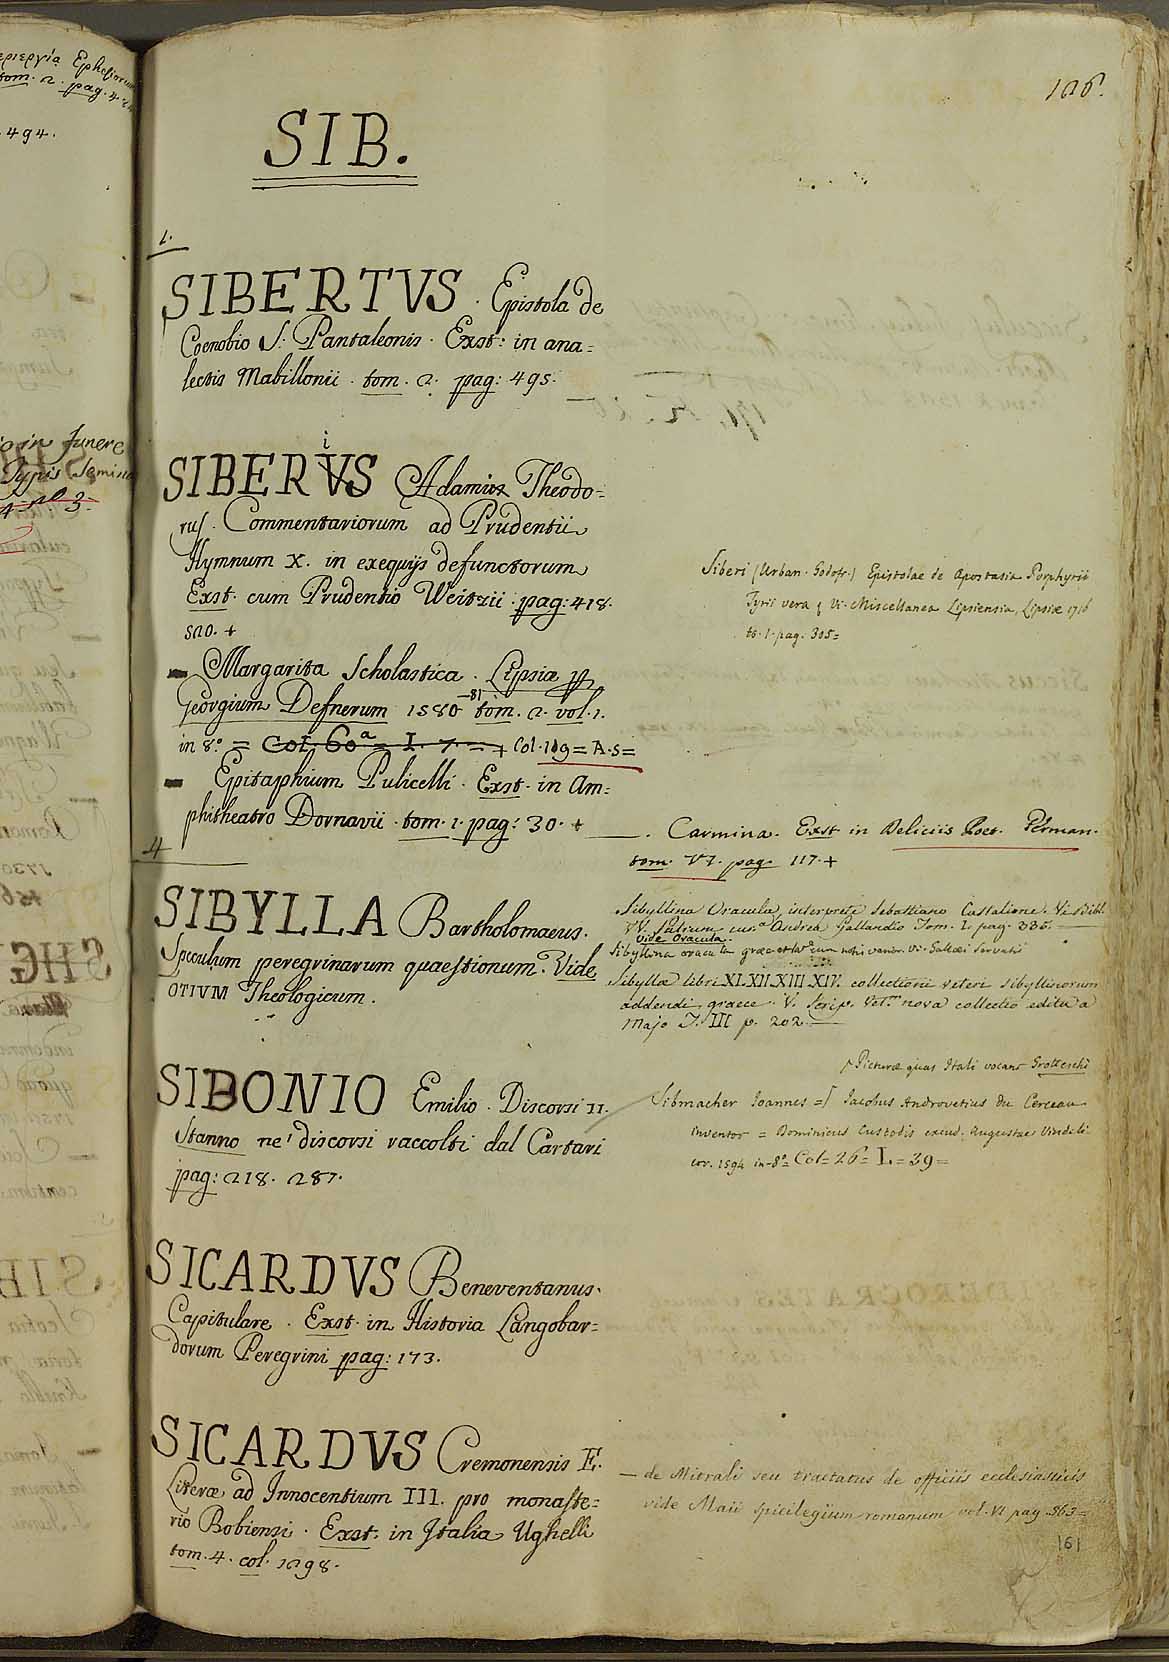 126.
SIB.
1.
SIBERTVS. Epistola de
Coenobio S: Pantaleonis. Exst: in ana=
lectis Mabillonii. tom. 2. pag: 495.
SIBERVS Adamus Theodo=
rus. Commentariorum ad Prudentii
Hymnum X. in exequijs defunctorum
Exst. cum Prudentio Weitzii. pag: 418.
520. +
— Margarita Scholastica. Lipsiæ
Georgium Defnerum 1580-81 tom. 2. vol. 1.
in 8.º = Col. 60ª = I. 7. = + Col. 119 = A. 5 =
— Epitaphium Pulicelli. Exst. in Am=
phitheatro Dornavii. tom. 1. pag: 30. +
4
SIBYLLA Bartholomaeus.
Speculum peregrinarum quaestionum. Vide
OTIVM Theologicum.
SIBONIO Emilio. Discorsi II.
Stanno ne' discorsi raccolti dal Cartari
pag: 218. 287.
SICARDVS Beneventanus.
Capitulare. Exst. in Historia Langobar=
dorum Peregrini pag: 173.
SICARDVS Cremonensis E.
Literæ ad Innocentium III. pro monaste=
rio Bobiensi. Exst: in Italia Ughelli
tom. 4. col. 1298.
Siberi (Urban. Godofr.) Epistolae de Apostasia Porphyrii
Tyrii vera Vi. Miscellanea Lipsiensia, Lipsiæ 1716
to. 1. pag. 305=
—. Carmina. Exst in Deliciis Poet. German.
tom. VI. pag. 117. +
Sibyllina Oracula, interprete Sebastiano Castalione. Vi. Bibl.
VV. Patrum cura Andrea Gallandio Tom. I. pag. 335.
vide Oracula.
Sibyllina oracula græc. et lat. cum notis varior. Vi. Gallæi Servatii
Sibyllæ libri XI. XII. XIII. XIV. collectioni veteri sibyllinorum
addendi, graece. V. Scrip. Vet. nova collectio edita a
Majo T. III p. 202.
Picturæ quas Itali vocant Grotteschi
Sibmacher Ioannes = Iacobus Androvetius du Cerceau
inventor = Dominicus Custodis excud. Augustae Vindeli
cor. 1594 in-8º= Col= 26= I.= 39=
— de Mitrali seu tractatus de officiis ecclesiasticis
vide Maii Spicilegium romanum vol. VI pag. 563=
161